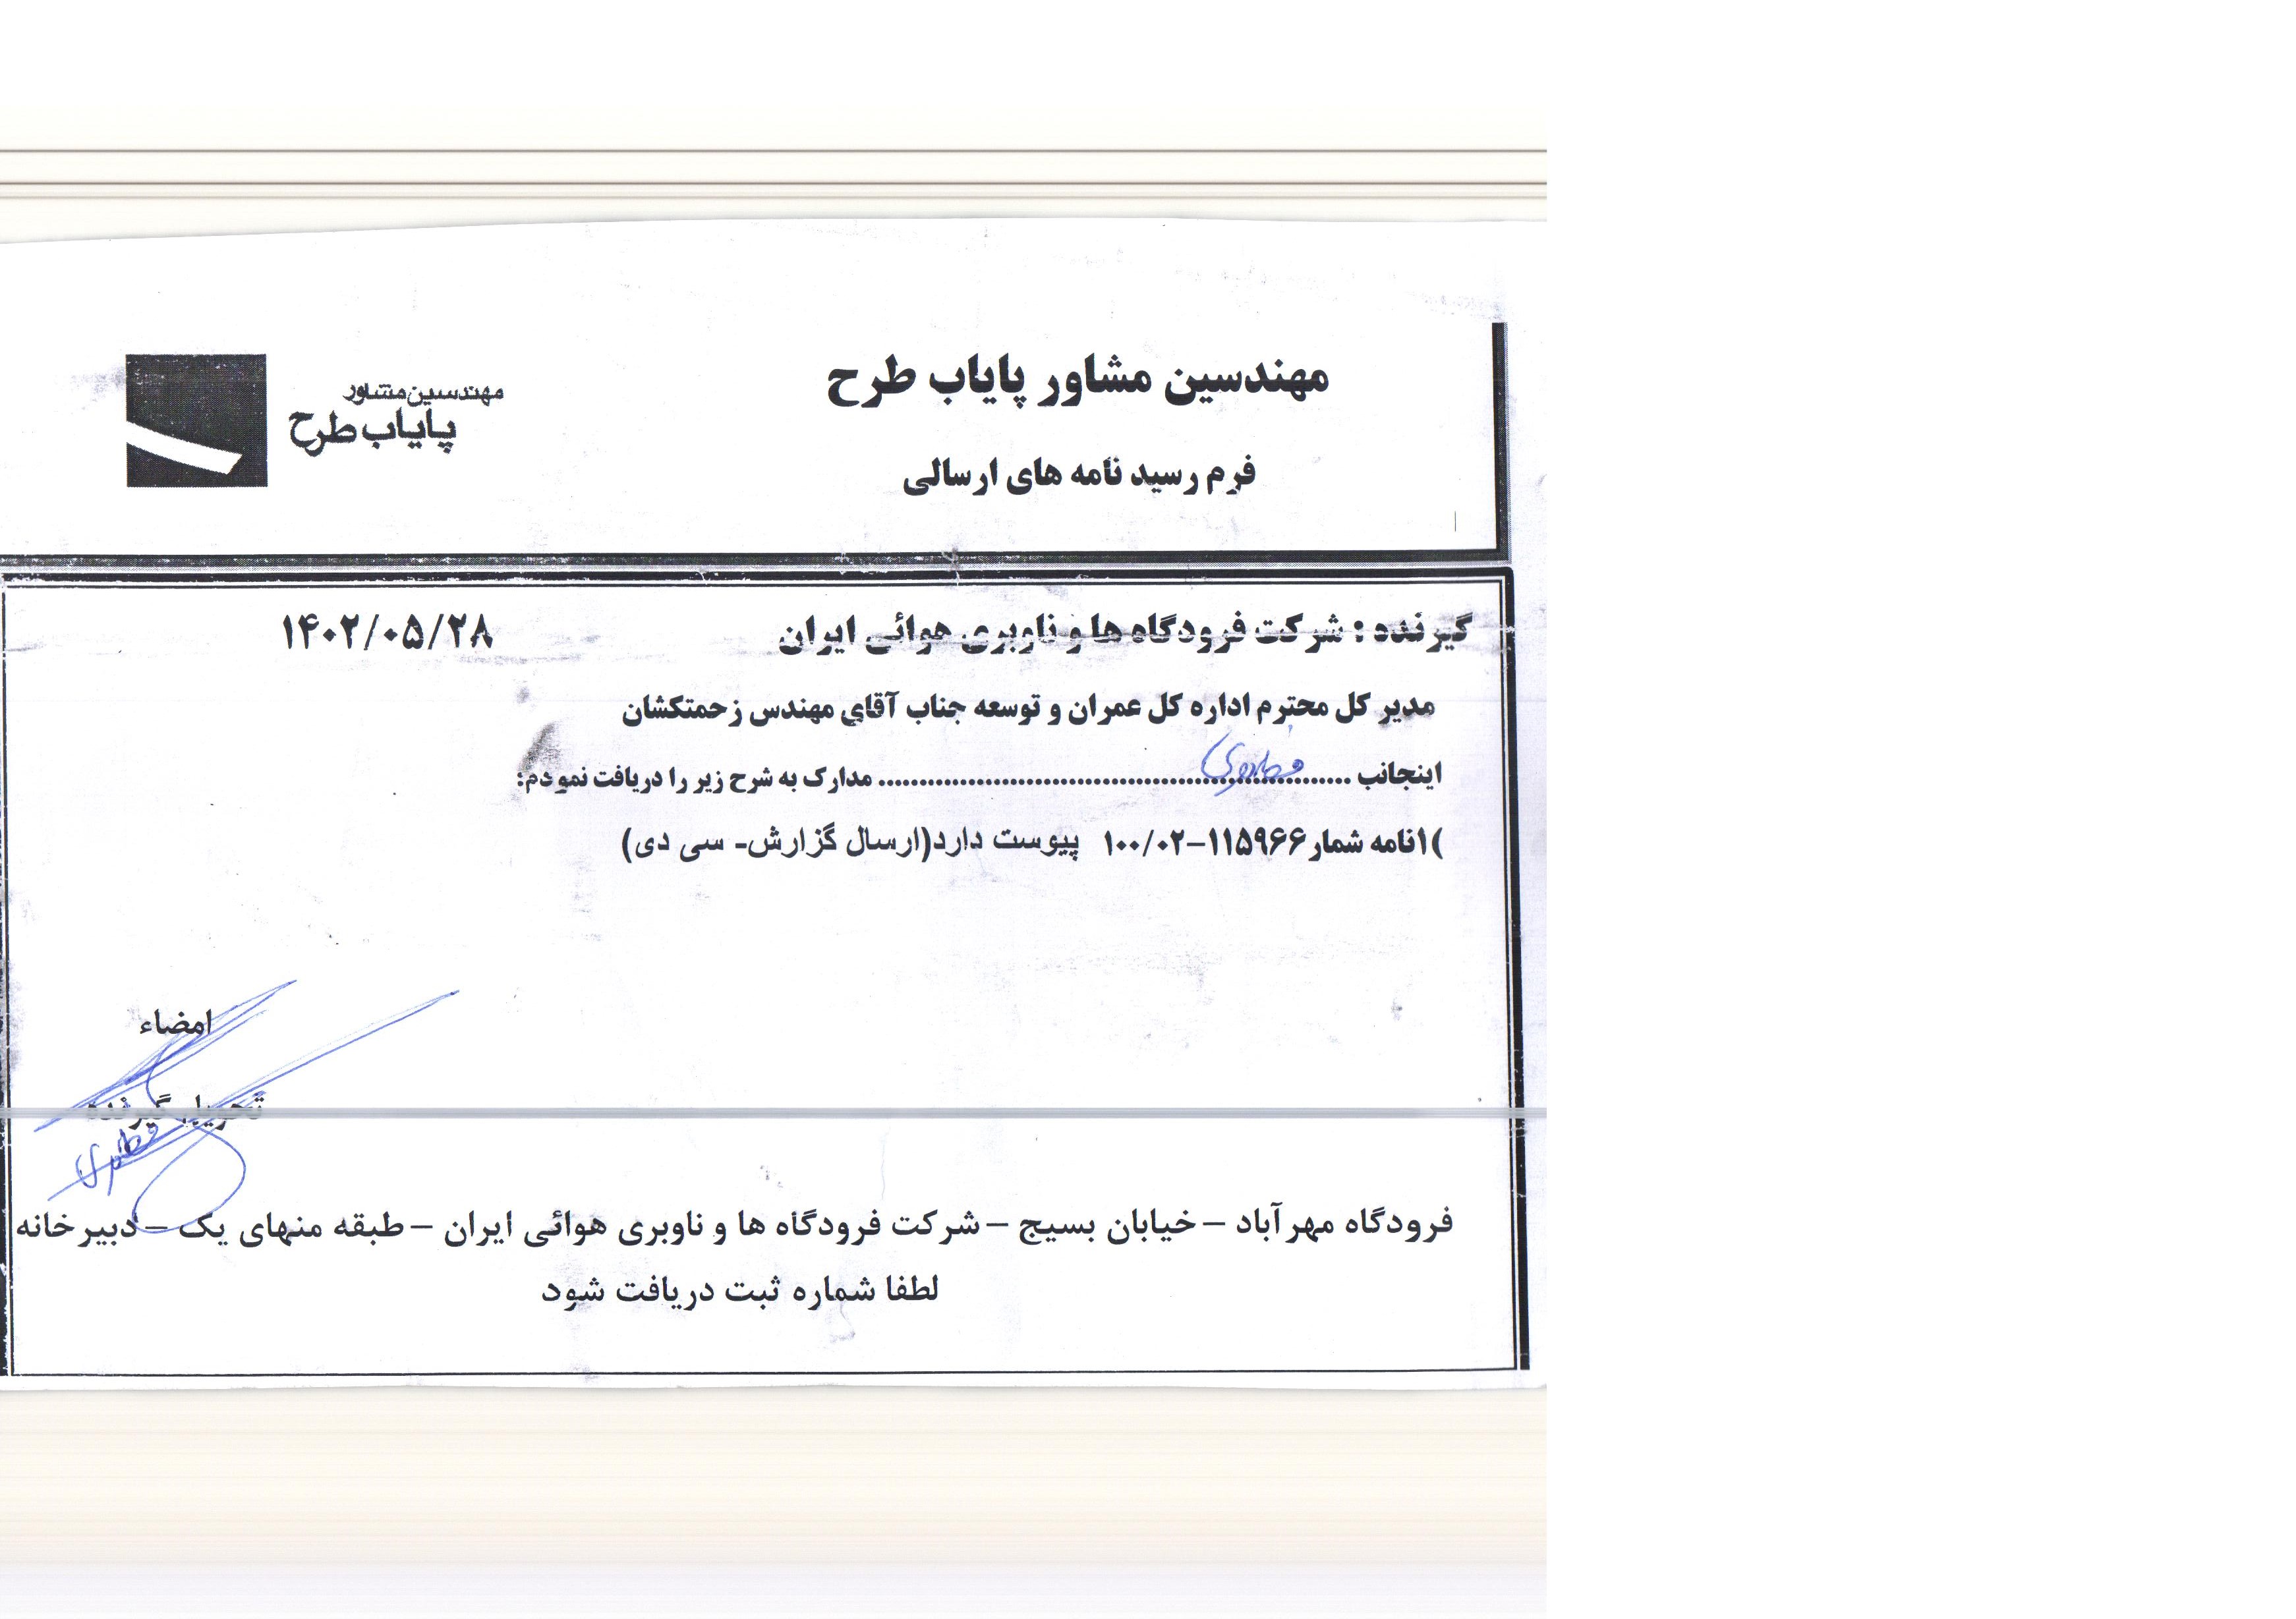 مهندسین مشاور پایاب طرح
مهندسین مشاور
پایاب طرح
فرم رسید نامه های ارسالی
گیرنده : شرکت فرودگاه ها و ناوبری هوائی ایران ۱۴۰۲/۰۵/۲۸
مدیر کل محترم اداره کل عمران و توسعه جناب آقای مهندس زحمتکشان
اینجانب ........................................................................ مدارک به شرح زیر را دریافت نمودم:
۱)نامه شمار۱۱۵۹۶۶-۱۰۰/۰۲ پیوست دارد(ارسال گزارش- سی دی)
امضاء
تحویل گیرنده
فرودگاه مهرآباد – خیابان بسیج – شرکت فرودگاه ها و ناوبری هوائی ایران – طبقه منهای یک – دبیرخانه
لطفا شماره ثبت دریافت شود